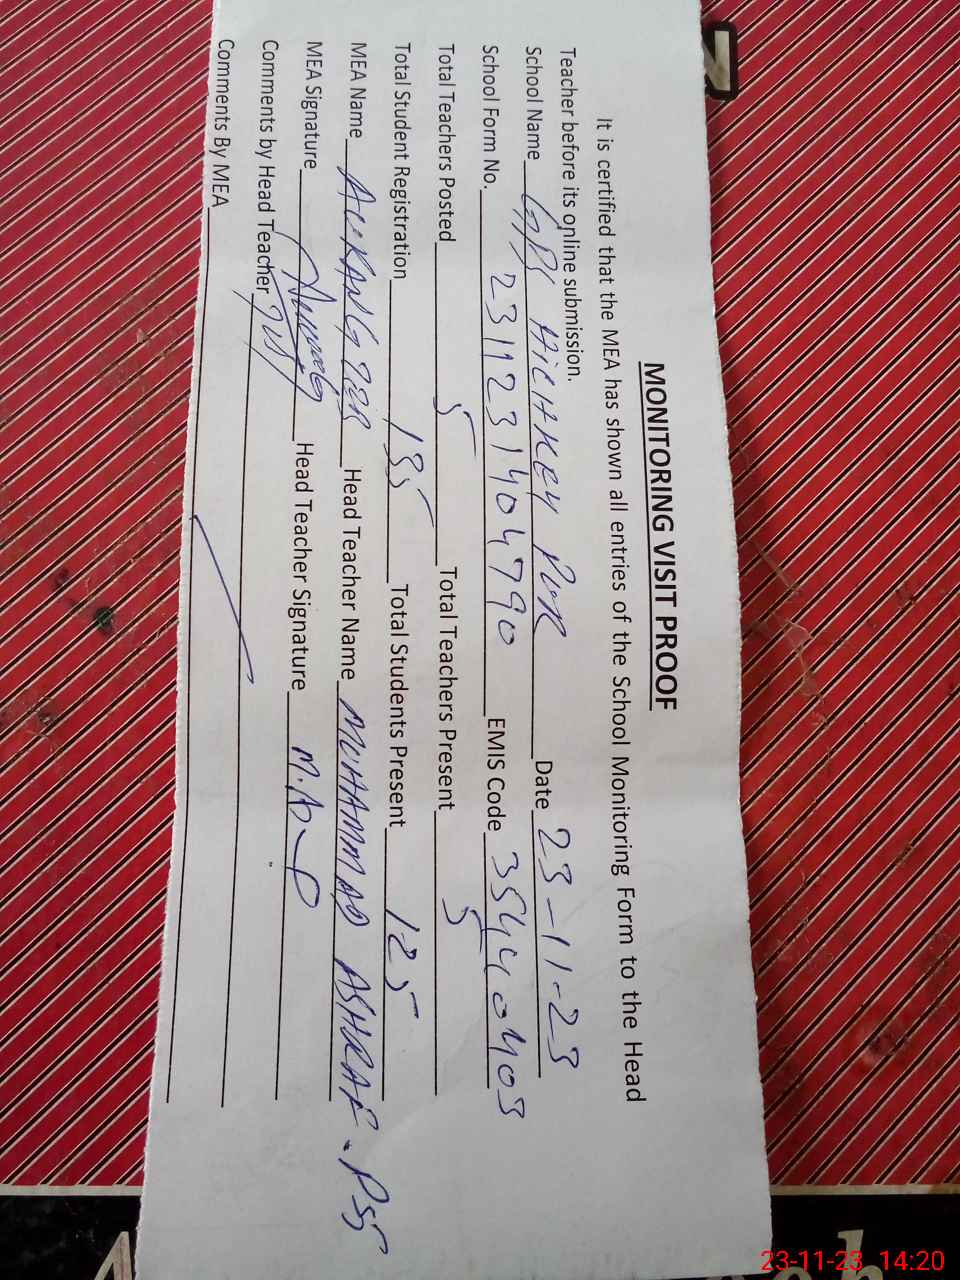 MONITORING VISIT PROOF
It is certified that the MEA has shown all entries of the School Monitoring Form to the Head
Teacher before its online submission.
School Name GPS HICHKEY PUR Date 23-11-23
School Form No. 2311231404790 EMIS Code 35440403
Total Teachers Posted 5 Total Teachers Present 5
Total Student Registration 135 Total Students Present 125
MEA Name AURANGZEB Head Teacher Name MUHAMMAD ASHRAF. PST
MEA Signature Head Teacher Signature
Comments by Head Teacher
Comments By MEA
23-11-23 14:20